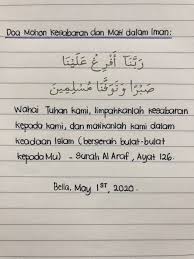 Doa Mohon Kesabaran dan Mati dalam Iman:
رَبَّنَا أَفْرِغْ عَلَيْنَا
صَبْرًا وَتَوَفَّنَا مُسْلِمِينَ
Wahai Tuhan kami, limpahkanlah kesabaran
kepada kami, dan matikanlah kami dalam
keadaan Islam (berserah bulat-bulat
kepada Mu) - Surah Al Araf, Ayat 126.
Bella, May 1ST, 2020.